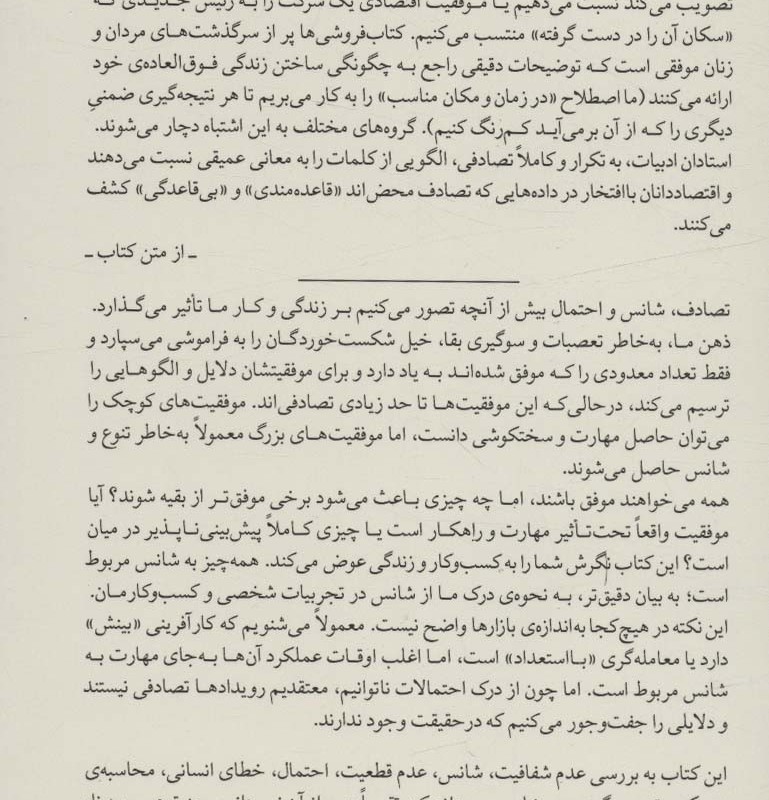 تصویب می‌کند نسبت می‌دهیم یا موفقیت اقتصادی یک شرکت را به رئیس جدیدی که
«سکان آن را در دست گرفته» منتسب می‌کنیم. کتاب‌فروشی‌ها پر از سرگذشت‌های مردان و
زنان موفقی است که توضیحات دقیقی راجع به چگونگی ساختن زندگی فوق‌العاده‌ی خود
ارائه می‌کنند (ما اصطلاح «در زمان و مکان مناسب» را به کار می‌بریم تا هر نتیجه‌گیری ضمنیِ
دیگری را که از آن برمی‌آید کم‌رنگ کنیم). گروه‌های مختلف به این اشتباه دچار می‌شوند.
استادان ادبیات، به تکرار و کاملاً تصادفی، الگویی از کلمات را به معانی عمیقی نسبت می‌دهند
و اقتصاددانان باافتخار در داده‌هایی که تصادف محض‌اند «قاعده‌مندی» و «بی‌قاعدگی» کشف
می‌کنند.
ـ از متن کتاب ـ
تصادف، شانس و احتمال بیش از آنچه تصور می‌کنیم بر زندگی و کار ما تأثیر می‌گذارد.
ذهن ما، به‌خاطر تعصبات و سوگیری بقا، خیل شکست‌خوردگان را به فراموشی می‌سپارد و
فقط تعداد معدودی را که موفق شده‌اند به یاد دارد و برای موفقیتشان دلایل و الگوهایی را
ترسیم می‌کند، درحالی‌که این موفقیت‌ها تا حد زیادی تصادفی‌اند. موفقیت‌های کوچک را
می‌توان حاصل مهارت و سختکوشی دانست، اما موفقیت‌های بزرگ معمولاً به‌خاطر تنوع و
شانس حاصل می‌شوند.
همه می‌خواهند موفق باشند، اما چه چیزی باعث می‌شود برخی موفق‌تر از بقیه شوند؟ آیا
موفقیت واقعاً تحت‌تأثیر مهارت و راهکار است یا چیزی کاملاً پیش‌بینی‌ناپذیر در میان
است؟ این کتاب نگرش شما را به کسب‌وکار و زندگی عوض می‌کند. همه‌چیز به شانس مربوط
است؛ به بیان دقیق‌تر، به نحوه‌ی درک ما از شانس در تجربیات شخصی و کسب‌وکارمان.
این نکته در هیچ‌کجا به‌اندازه‌ی بازارها واضح نیست. معمولاً می‌شنویم که کارآفرینی «بینش»
دارد یا معامله‌گری «بااستعداد» است، اما اغلب اوقات عملکرد آن‌ها به‌جای مهارت به
شانس مربوط است. اما چون از درک احتمالات ناتوانیم، معتقدیم رویدادها تصادفی نیستند
و دلایلی را جفت‌وجور می‌کنیم که درحقیقت وجود ندارند.
این کتاب به بررسی عدم شفافیت، شانس، عدم قطعیت، احتمال، خطای انسانی، محاسبه‌ی